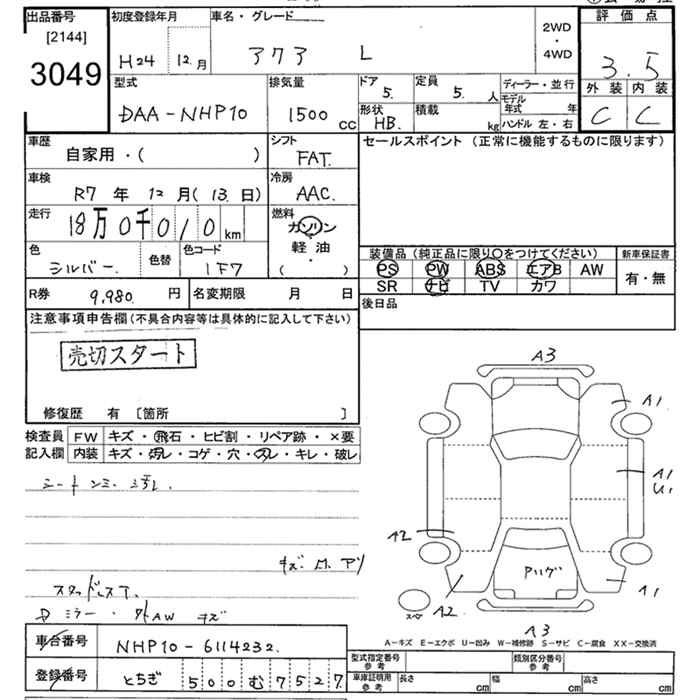 出品番号
[2144]
3049
初度登録年月
H24 12月
車名・グレード
アクア L
2WD
・
4WD
評価点
3.5
外装 内装
C C
型式
DAA-NHP10
排気量
1500 cc
ドア
5.
定員
5. 人
形状
HB.
積載
kg
ディーラー・並行
モデル年式 年
ハンドル 左・右
車歴
自家用・( )
シフト
FAT.
車検
R7 年 12 月(13.日)
冷房
AAC.
走行
18万0千010 km
燃料
ガソリン
軽油
( )
色
シルバー.
色替
色コード
1F7
R券 9,980. 円
名変期限 月 日
セールスポイント (正常に機能するものに限ります)
装備品 (純正品に限り○をつけてください)
新車保証書
PS PW ABS エアB AW
SR ナビ TV カワ
有・無
後日品
注意事項申告欄(不具合内容等は具体的に記入して下さい)
売切スタート
修復歴 有 [箇所 ]
検査員
記入欄
FW キズ・飛石・ヒビ割・リペア跡・×要
内装 キズ・汚レ・コゲ・穴・スレ・キレ・破レ
シート シミ 汚レ.
スタッドレスT.
ミラー・外AW キズ
A3
A1
A1
U1
A2
A2
A1
A3
スペア
A-キズ E-エクボ U-凹み W-補修跡 S-サビ C-腐食 XX-交換済
車台番号 NHP10-6114232.
登録番号 とちぎ 500む7527
型式指定番号
参考
類別区分番号
参考
車庫証明用
参考
長さ cm 幅 cm 高さ cm